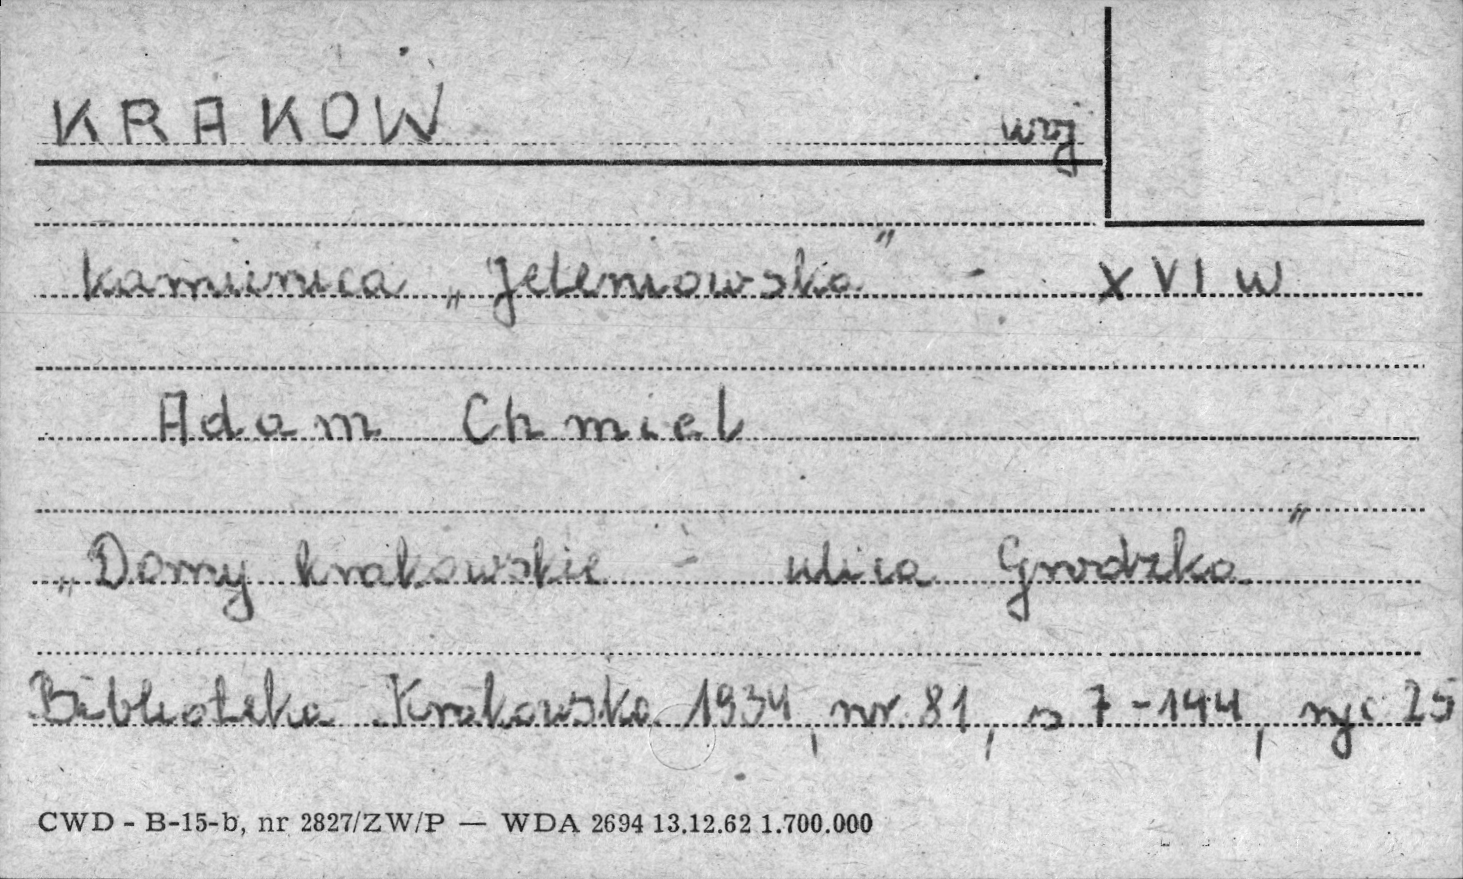 KRAKÓW
kamienica „Jeleniowska" - XVI w
Adam Chmiel
„Domy krakowskie - ulica Grodzka"
Biblioteka Krakowska 1934, nr 81, s 7-144, ryc 25
CWD - B-15-b, nr 2827/ZW/P — WDA 2694 13.12.62 1.700.000